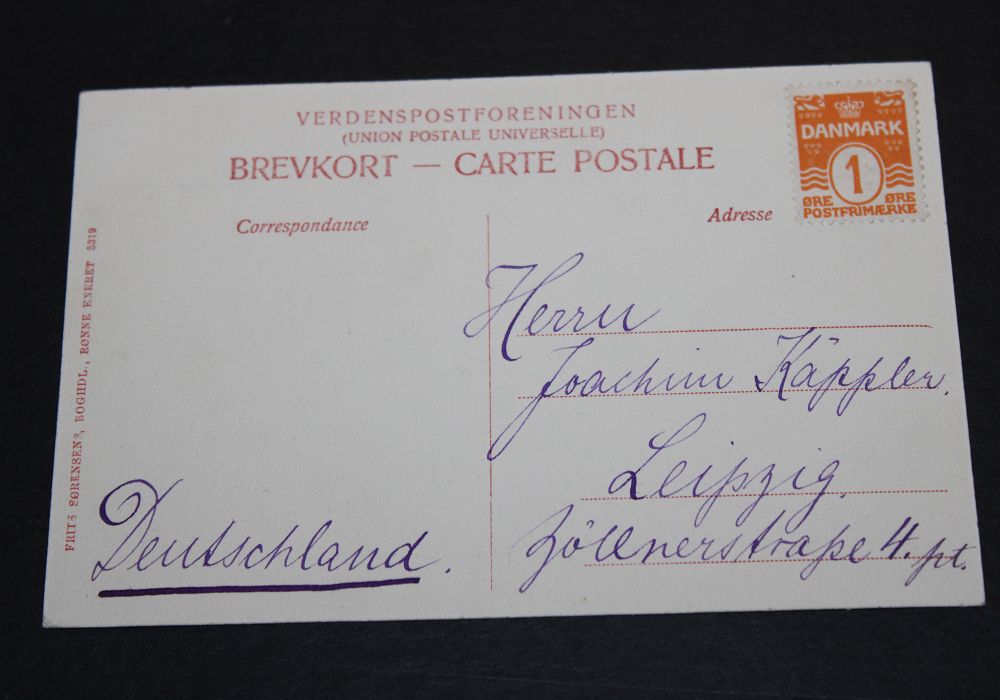 VERDENSPOSTFORENINGEN
(UNION POSTALE UNIVERSELLE)
BREVKORT — CARTE POSTALE
DANMARK
1
ØRE ØRE
POSTFRIMÆRKE
Correspondance
Adresse
Herrn
Joachim Käppler.
Leipzig.
Zöllnerstraße 4. pt.
Deutschland.
FRITS SØRENSENS, BOGHDL., RØNNE ENERET 5319